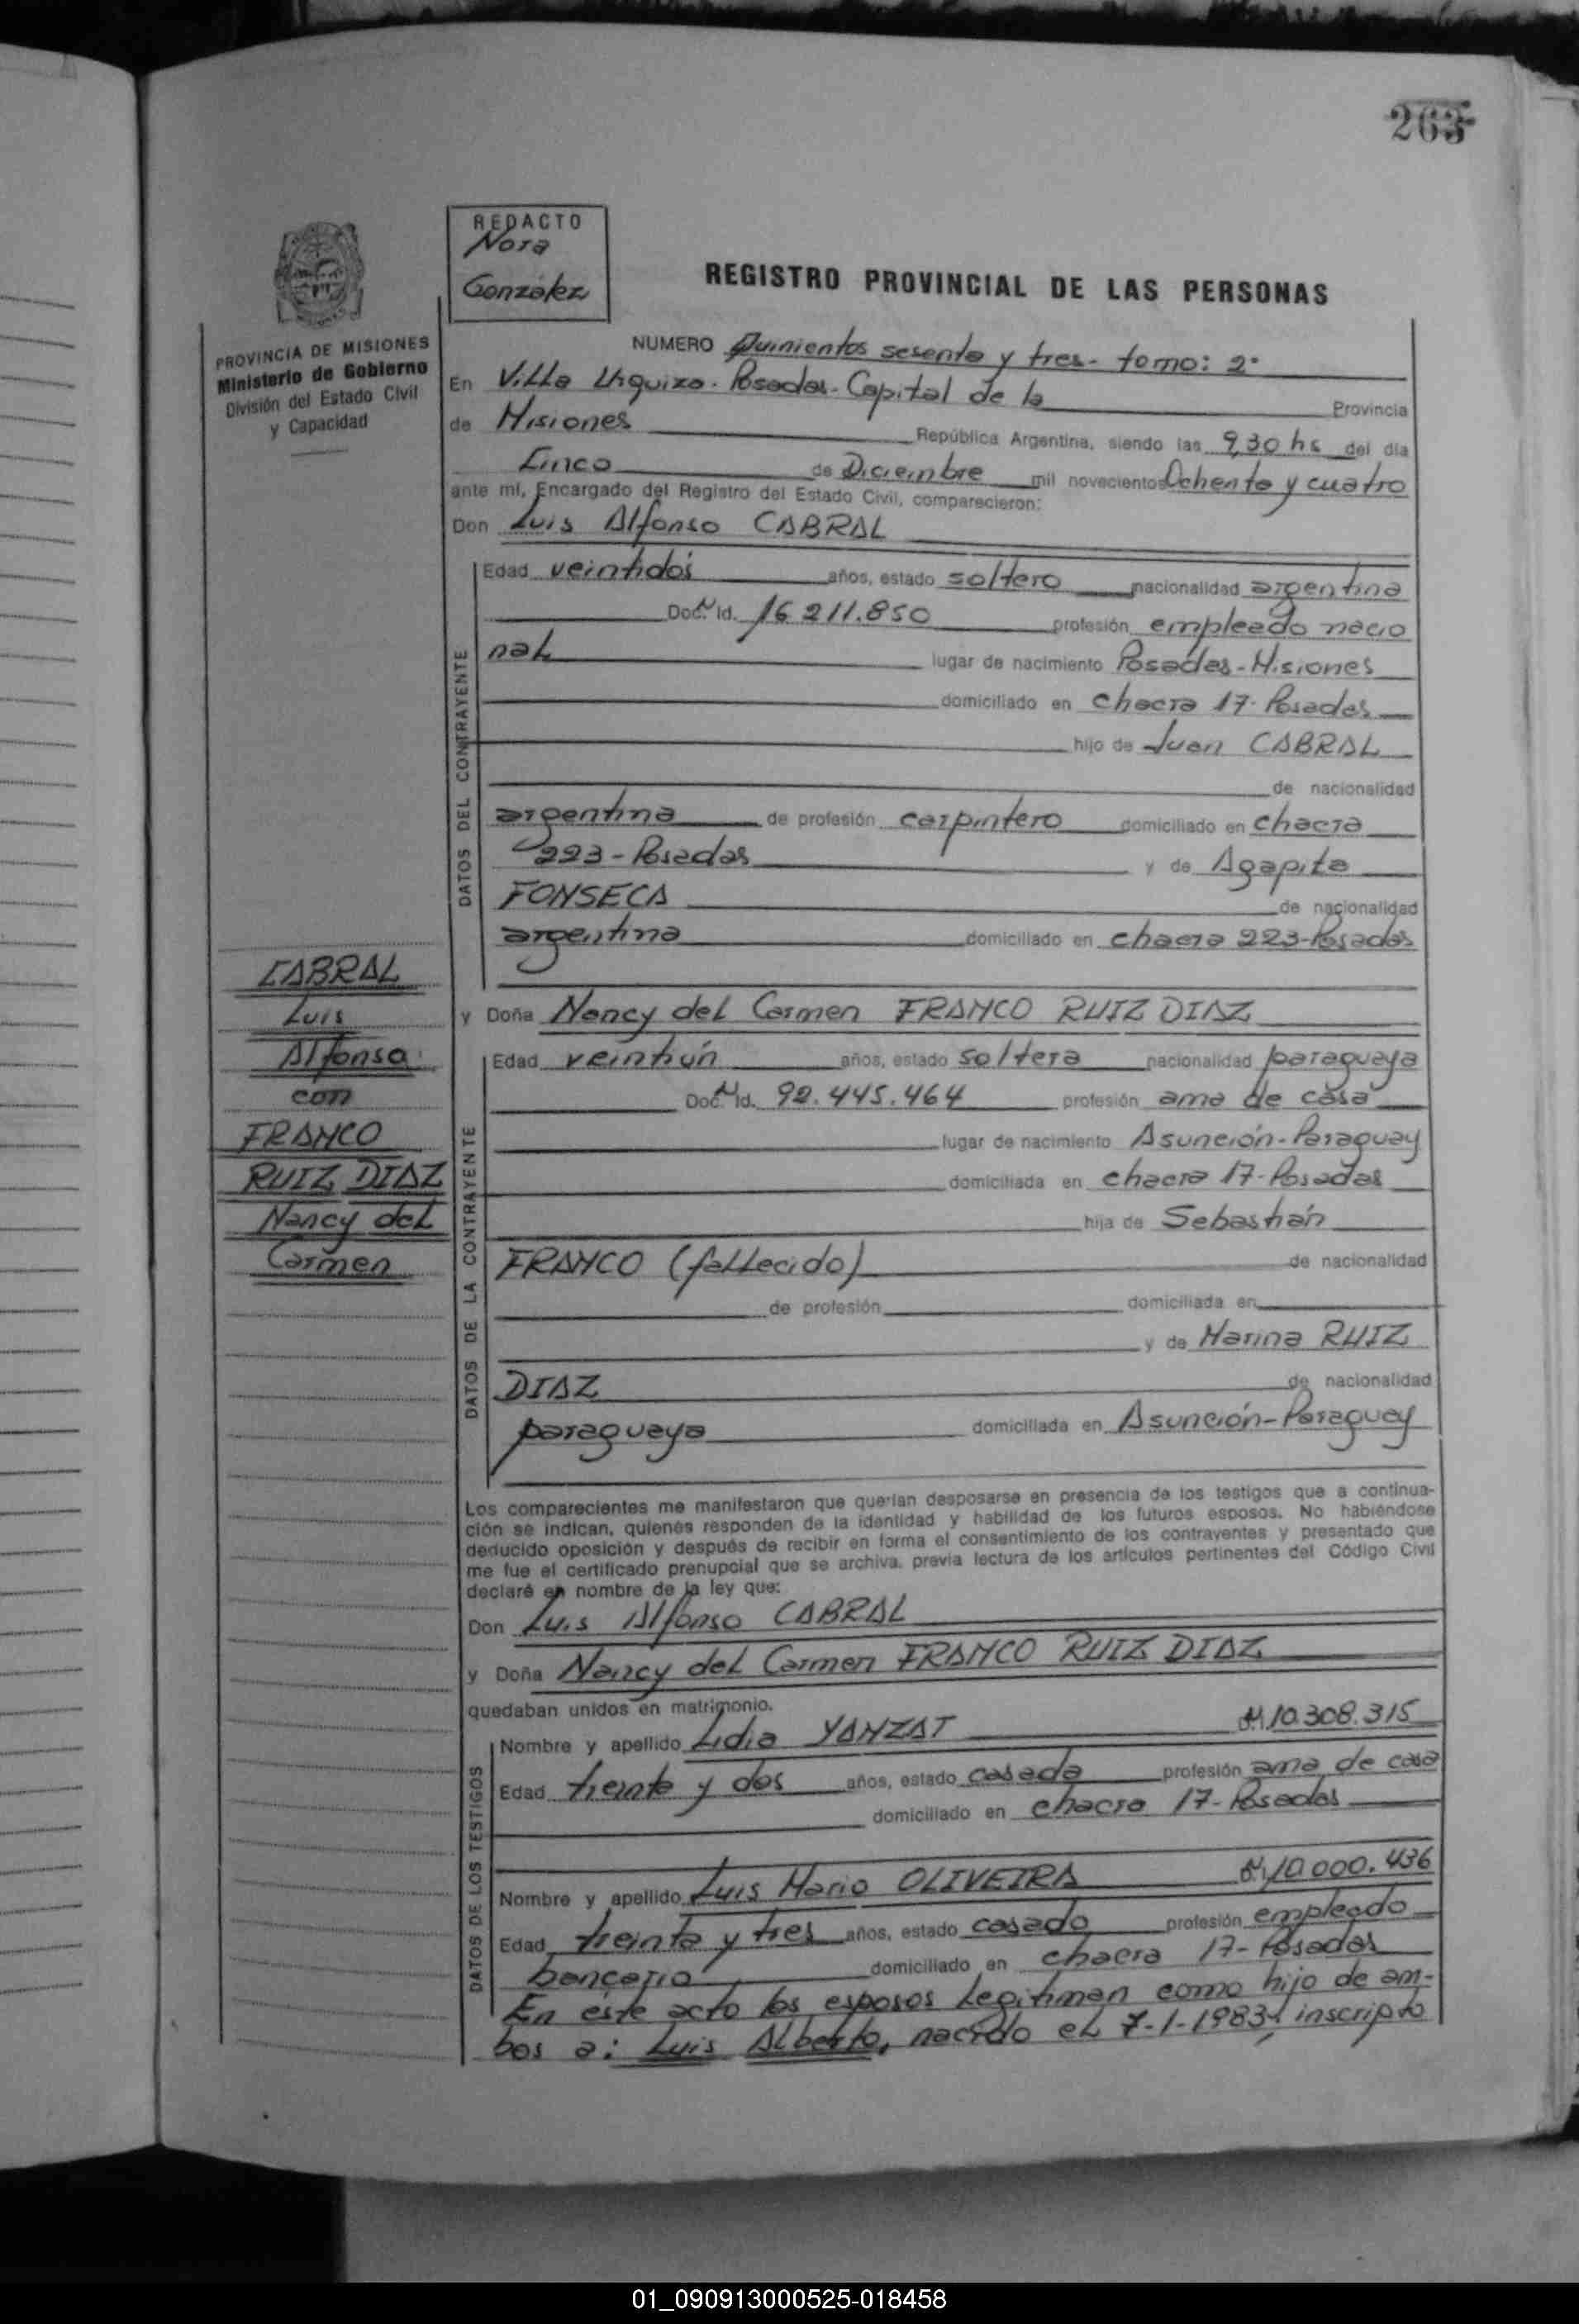 263
REDACTO
Nora
González
REGISTRO PROVINCIAL DE LAS PERSONAS
PROVINCIA DE MISIONES
Ministerio de Gobierno
División del Estado Civil
y Capacidad
NUMERO Quinientos sesenta y tres- tomo: 2°
En Villa Urquiza- Posadas- Capital de la Provincia
de Misiones República Argentina, siendo las 9,30 hs del día
Cinco de Diciembre mil novecientos Ochenta y cuatro
ante mí, Encargado del Registro del Estado Civil, comparecieron:
Don Luis Alfonso CABRAL
DATOS DEL CONTRAYENTE
Edad veintidós años, estado soltero nacionalidad argentina
Doc. Id. 16.211.850 profesión empleado nacio
nal lugar de nacimiento Posadas-Misiones
domiciliado en chacra 17- Posadas
hijo de Juan CABRAL
de nacionalidad
argentina de profesión carpintero domiciliado en chacra
223-Posadas y de Agapita
FONSECA de nacionalidad
argentina domiciliado en chacra 223-Posadas
CABRAL
Luis
Alfonso
con
FRANCO
RUIZ DIAZ
Nancy del
Carmen
y Doña Nancy del Carmen FRANCO RUIZ DIAZ
DATOS DE LA CONTRAYENTE
Edad veintiún años, estado soltera nacionalidad paraguaya
Doc. Id. 92.445.464 profesión ama de casa
lugar de nacimiento Asunción-Paraguay
domiciliada en chacra 17-Posadas
hija de Sebastián
FRANCO (fallecido) de nacionalidad
de profesión domiciliada en
y de Marina RUIZ
DIAZ de nacionalidad
paraguaya domiciliada en Asunción-Paraguay
Los comparecientes me manifestaron que querían desposarse en presencia de los testigos que a continua-
ción se indican, quienes responden de la identidad y habilidad de los futuros esposos. No habiéndose
deducido oposición y después de recibir en forma el consentimiento de los contrayentes y presentado que
me fue el certificado prenupcial que se archiva, previa lectura de los artículos pertinentes del Código Civil
declaré en nombre de la ley que:
Don Luis Alfonso CABRAL
y Doña Nancy del Carmen FRANCO RUIZ DIAZ
quedaban unidos en matrimonio.
DATOS DE LOS TESTIGOS
Nombre y apellido Lidia YANZAT 10.308.315
Edad treinta y dos años, estado casada profesión ama de casa
domiciliado en chacra 17-Posadas
Nombre y apellido Luis Mario OLIVEIRA 10.000.436
Edad treinta y tres años, estado casado profesión empleado
bancario domiciliado en chacra 17-Posadas
En éste acto los esposos legitiman como hijo de am-
bos a: Luis Alberto, nacido el 7-1-1983, inscripto
01_090913000525-018458